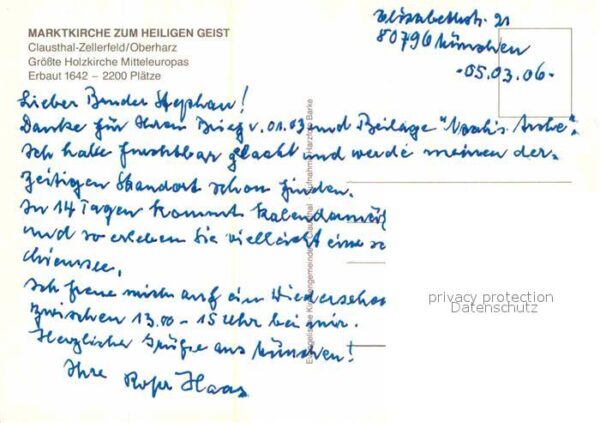 MARKTKIRCHE ZUM HEILIGEN GEIST
Clausthal-Zellerfeld/Oberharz
Größte Holzkirche Mitteleuropas
Erbaut 1642 – 2200 Plätze
Elisabethstr. 21
80796 München
-05.03.06-
Lieber Bruder Stephan!
Danke für Ihren Brief v. 01.03 und Beilage "Noah's Arche".
Ich habe furchtbar gelacht und werde meinen der-
zeitigen Standort schon finden.
In 14 Tagen kommt
und so erleben Sie vielleicht eine
chiemsee.
Ich freue mich auf ein Wiedersehen
zwischen 13.00 - 15 Uhr bei mir.
Herzliche Grüße aus München!
Ihre Haas
Evangelische Kirchengemeinde Clausthal Aufnahme: Harzfoto Barke
privacy protection
Datenschutz